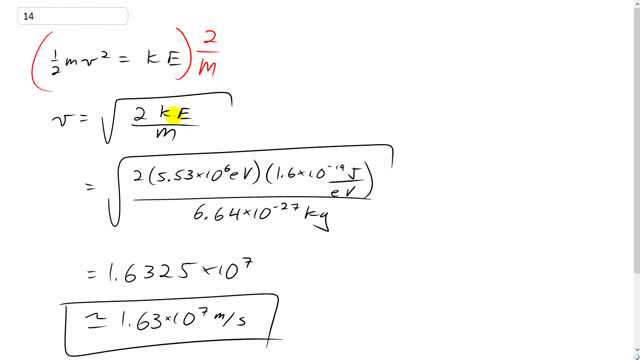 14
(½mv² = KE) 2/m
v = √(2KE/m)
= √(2(5.53×10⁶eV)(1.6×10⁻¹⁹ J/eV)/6.64×10⁻²⁷kg)
= 1.6325×10⁷
≃ 1.63×10⁷ m/s